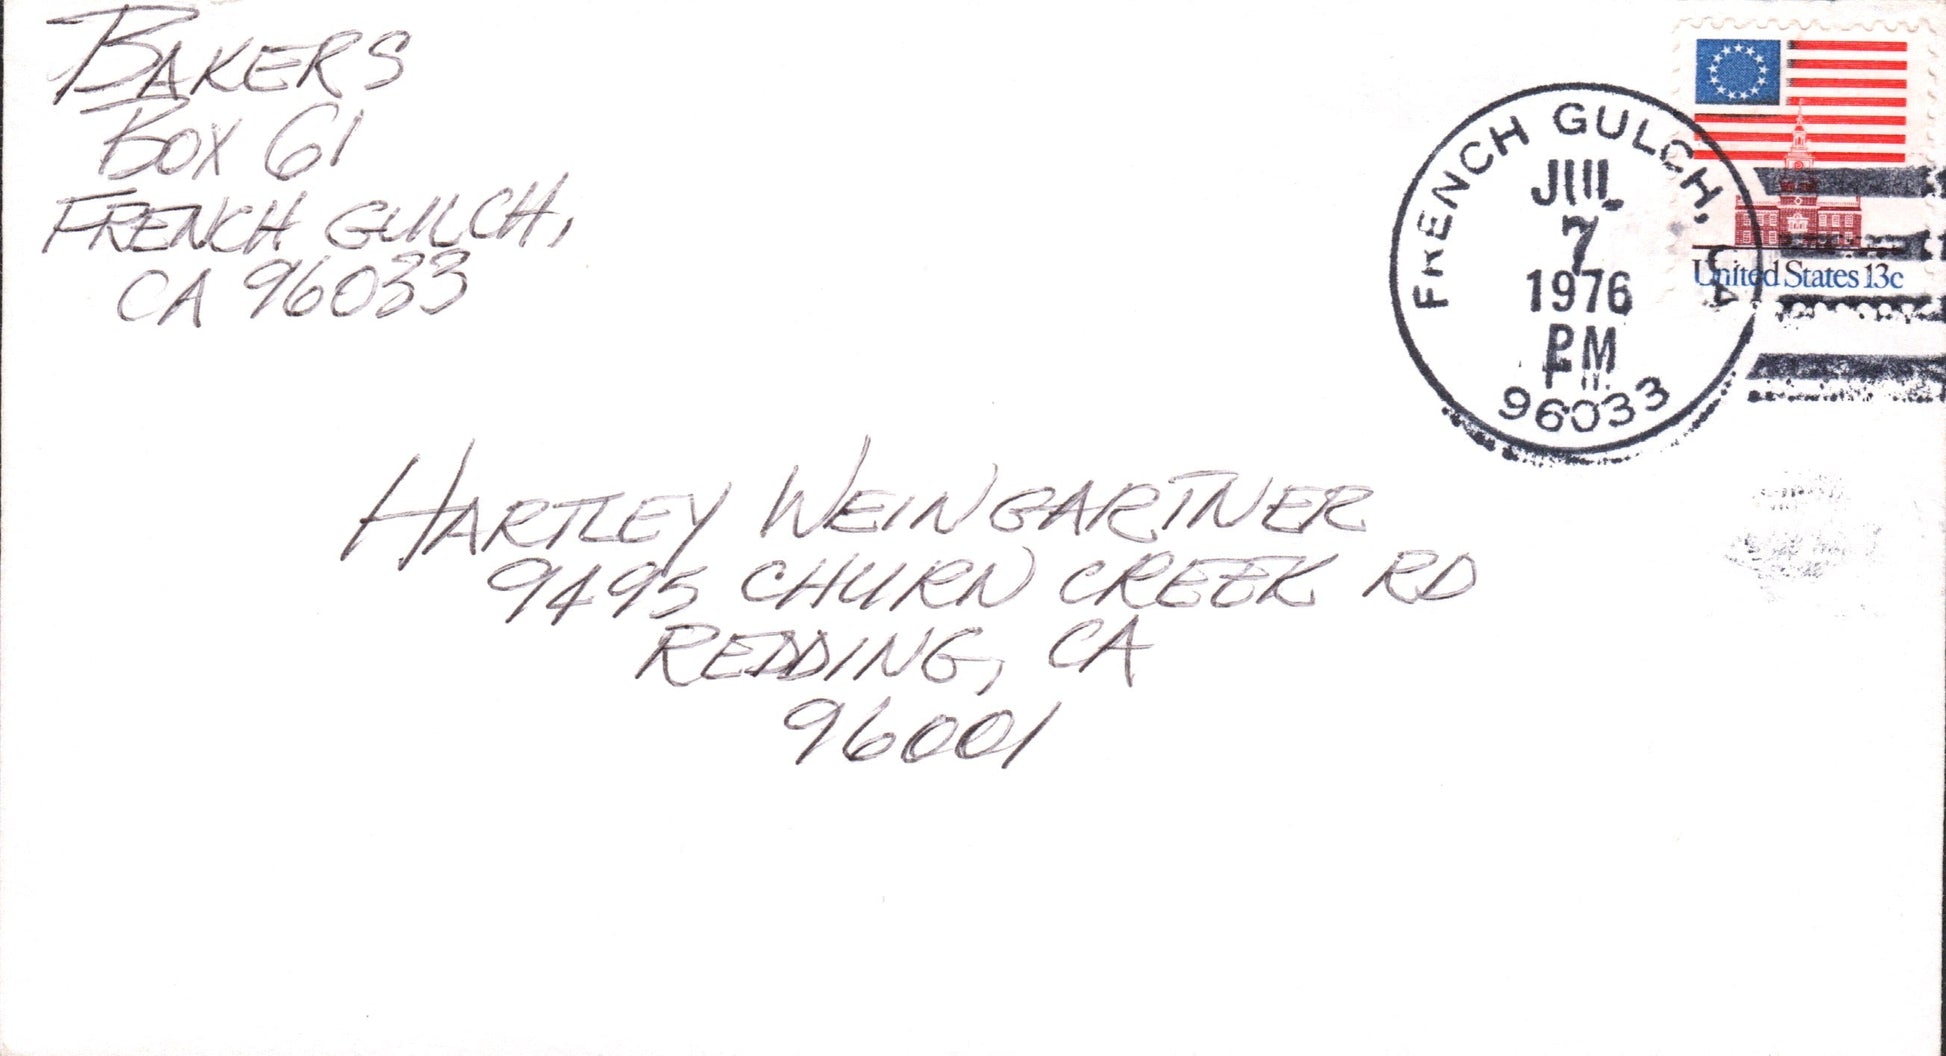 BAKERS
BOX 61
FRENCH GULCH,
CA 96033
FRENCH GULCH, CA
JUL
7
1976
PM
96033
United States 13c
HARTLEY WEINGARTNER
9495 CHURN CREEK RD
REDDING, CA
96001